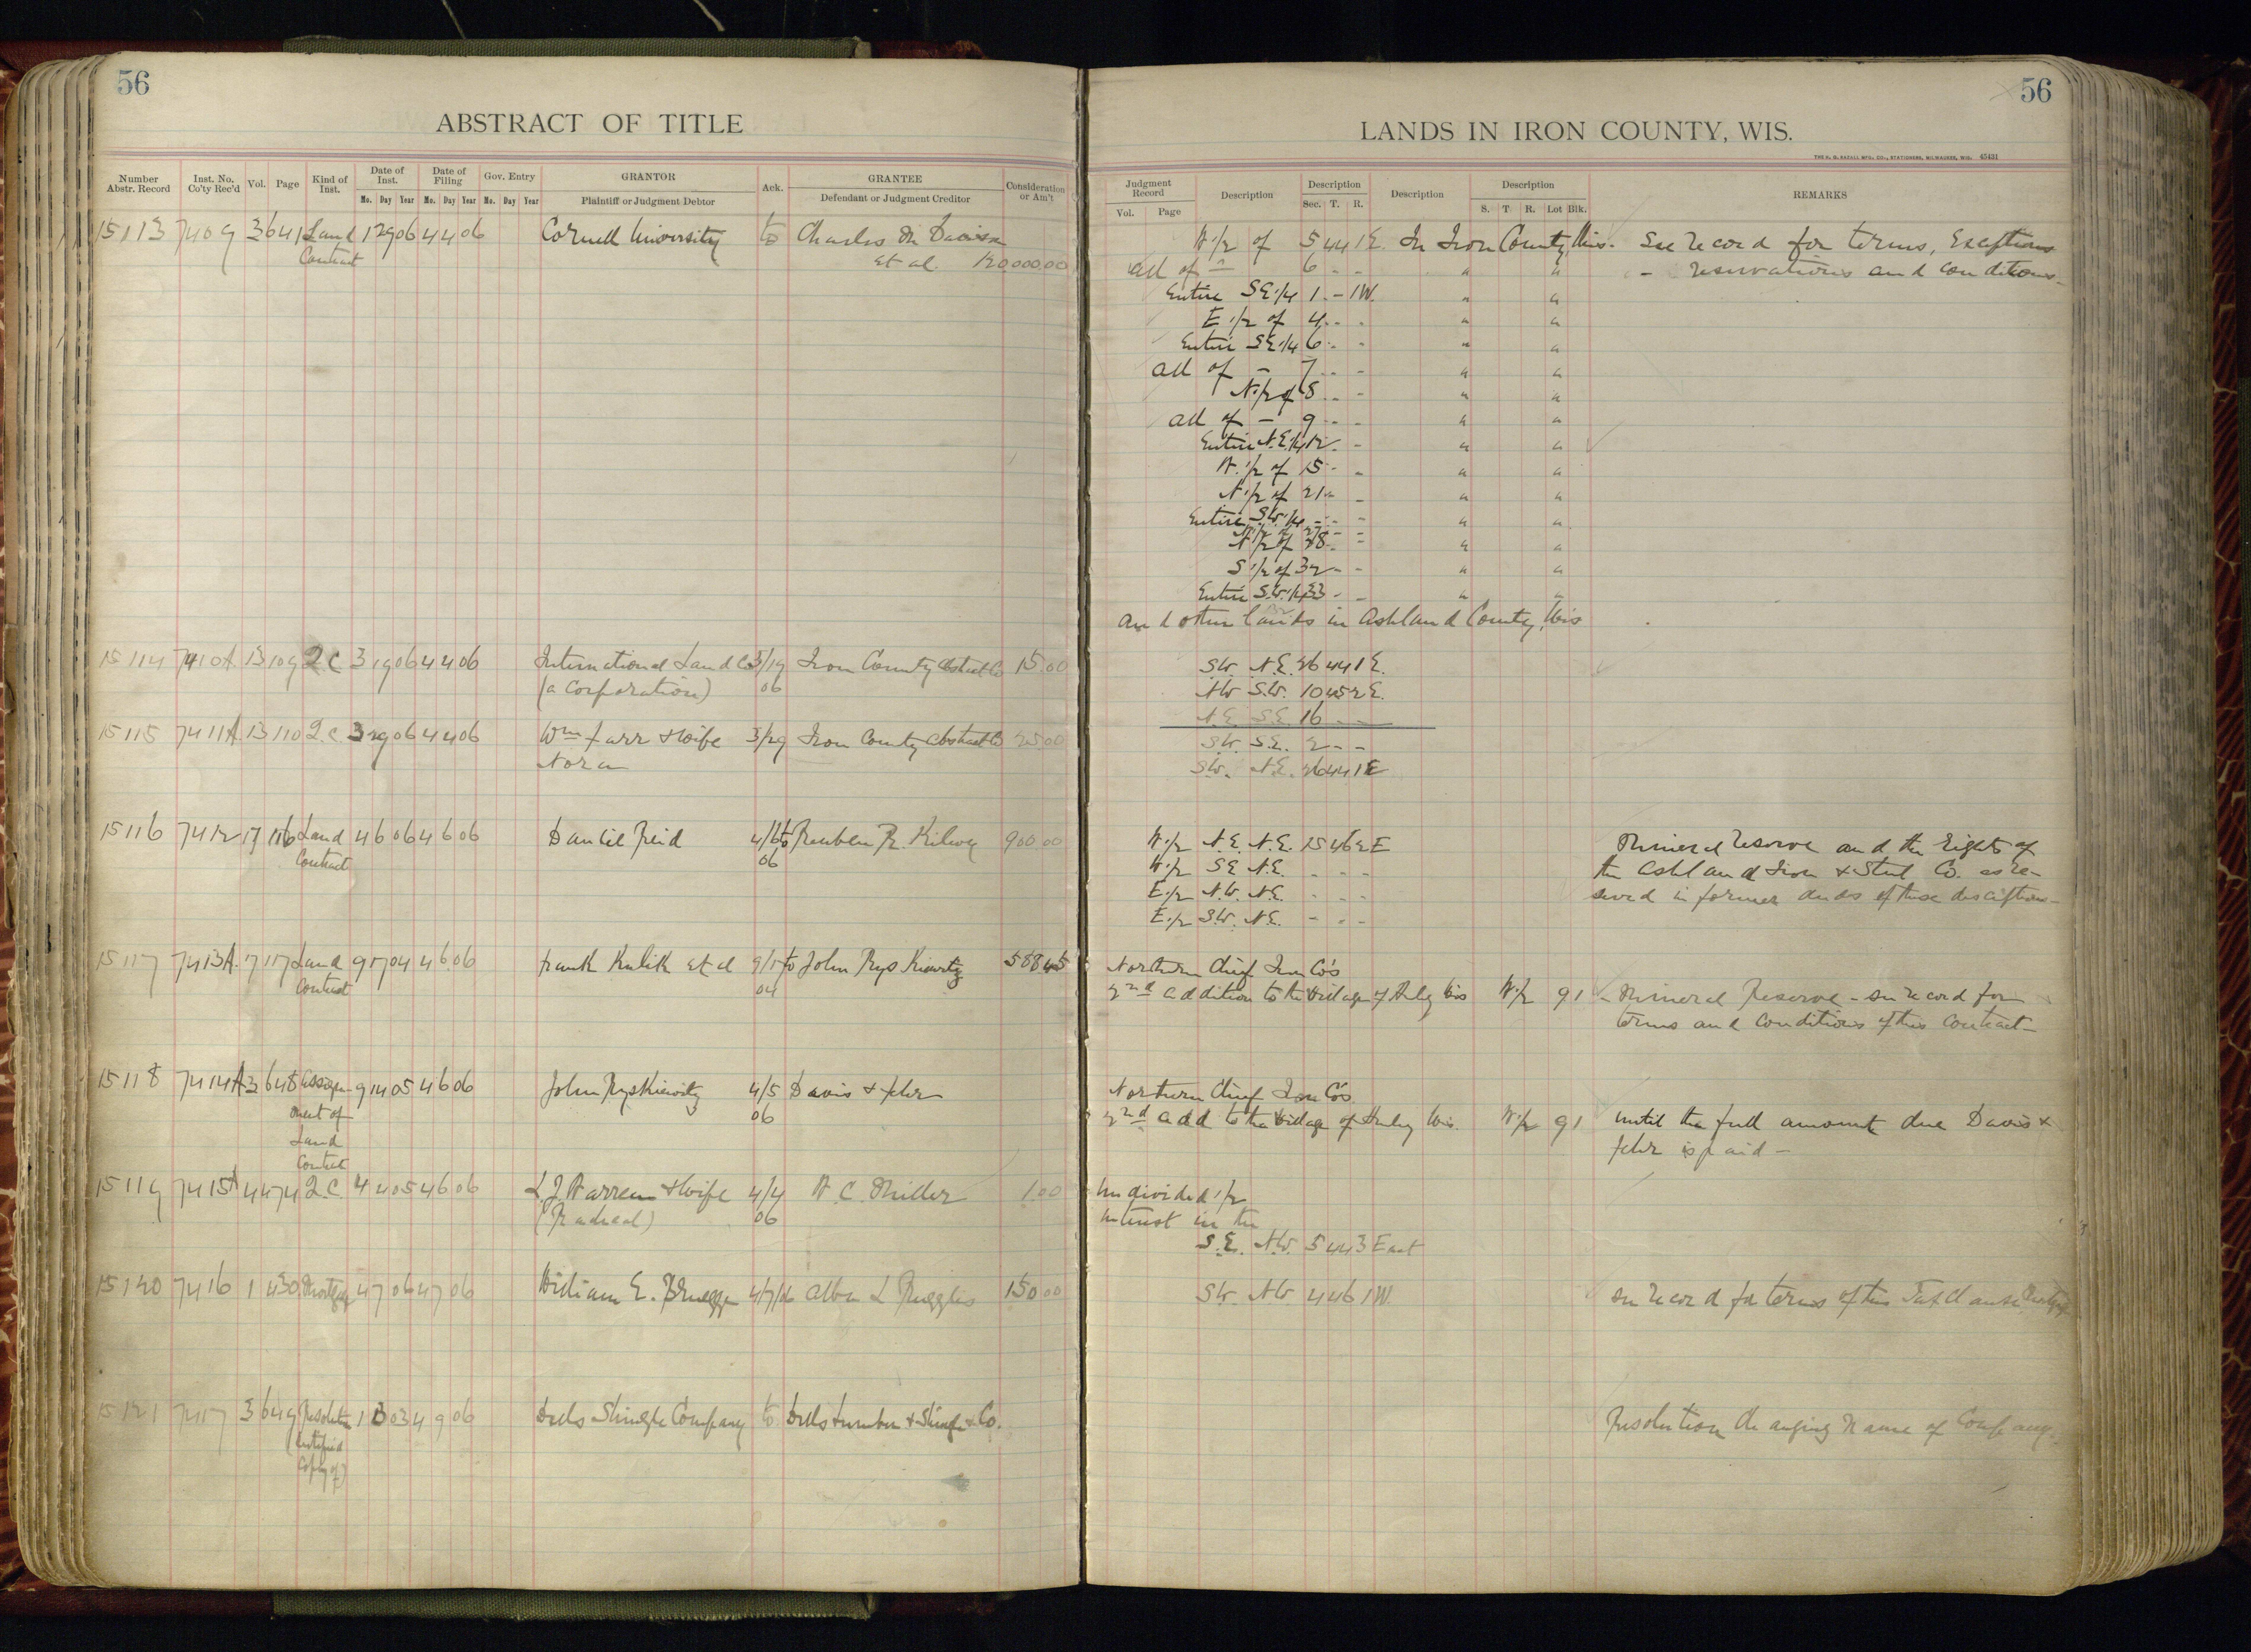 56
ABSTRACT OF TITLE
Number Abstr. Record
Inst. No. Co'ty Rec'd
Vol.
Page
Kind of Inst.
Date of Inst.
Mo. Day Year
Date of Filing
Mo. Day Year
Gov. Entry
Mo. Day Year
GRANTOR
Plaintiff or Judgment Debtor
Ack.
GRANTEE
Defendant or Judgment Creditor
Consideration or Am't
15113 7409 3 641 Land 1 29 06 4 4 06 Cornell University to Charles M Davison
Contract et al. 120,000.00
15114 7410A 13 109 Q.C. 3 19 06 4 4 06 International Land Co 3/19 Iron County Abstract Co 15.00
(a Corporation) 06
15115 7411A 13 110 Q.C. 3 29 06 4 4 06 Wm Farr & Wife 3/29 Iron County Abstract Co 25.00
Nora
15116 7412 17 116 Land 4 6 06 4 6 06 Daniel Reid 4/6 to Reuben R. 900 00
Contract 06
15117 7413A. 17 117 Land 9 17 04 4 6 06 Frank Kulik et al 9/17 to John Ryskiewitz 588 45
Contract 04
15118 7414A 3 648 Assign 9 14 05 4 6 06 John Ryskiewitz 4/5 Davis & Fehr
ment of 06
Land
Contract
15119 7415A 4 474 Q.C. 4 4 05 4 6 06 L. J. Warren & Wife 4/4 W. C. Miller 1.00
(Rachael) 06
15120 7416 1 430 Mortgage 4 7 06 4 7 06 William E. 4/7/06 L Ruggles 150 00
15121 7417 3 649 Resolution 1 3 03 4 9 06 Dells Shingle Company to Dells Lumber & Shingle Co.
(Certified
Copy of)
56
LANDS IN IRON COUNTY, WIS.
THE H. G. RAZALL MFG. CO., STATIONERS, MILWAUKEE, WIS. 45431
Judgment Record
Vol. Page
Description
Description
Sec. T. R.
Description
Description
S. T. R. Lot Blk.
REMARKS
W 1/2 of 5 44 1 E. In Iron County, Wis. See record for terms, Exceptions
all of - 6 - - " " - reservations and conditions.
Entire SE 1/4 1 - 1 W. " "
E 1/2 of 4 - - " "
Entire SE 1/4 6 - - " "
all of - 7 - - " "
N 1/2 of 8 - - " "
all of - 9 - - " "
Entire N.E. 1/4 12 - - " "
W. 1/2 of 15 - - " "
N. 1/2 of 21 - - " "
Entire S.W. 1/4 - - - " "
N 1/2 of 28 - - " "
S 1/2 of 32 - - " "
Entire S.W. 1/4 33 - - " "
and other lands in Ashland County, Wis
SW. N.E. 26 44 1 E.
NW S.W. 10 45 2 E.
N.E. S.E. 16 - -
S.W. S.E. 2 - -
SW. N.E. 26 44 1 E
W. 1/2 N.E. N.E. 15 46 2 E Mineral reserve and the rights of
W. 1/2 SE N.E. - - - the Ashland Iron & Steel Co. as re-
E. 1/2 N.W. N.E. - - - served in former deeds of these descriptions -
E. 1/2 S.W. N.E. - - -
Northern Chief Iron Co's
2nd addition to the Village of Hurley Wis W. 1/2 9 1 - Mineral Reserve - see record for
terms and conditions of this contract -
Northern Chief Iron Co's.
2nd add to the Village of Hurley Wis. W. 1/2 9 1 until the full amount due Davis &
Fehr is paid -
Undivided 1/2
interest in the
S.E. N.W. 5 44 3 East
SW. NW 4 46 1 W. see record for terms of this Tax Clause Mortgage
Resolution changing name of Company.